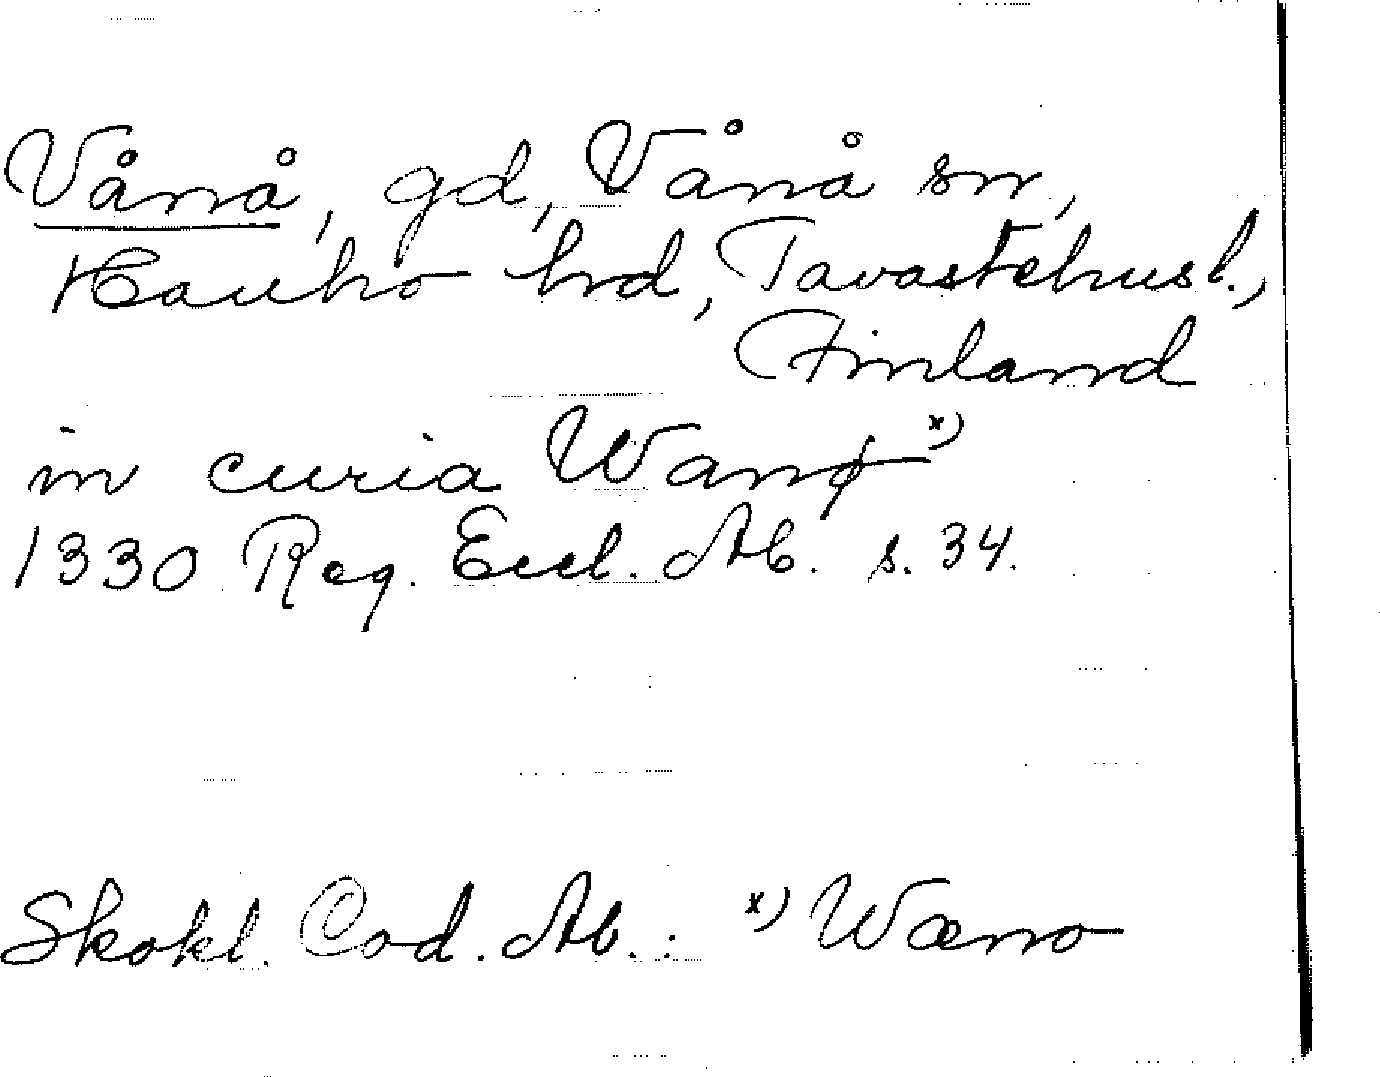 Vånå, gd, Vånå sn,
Hauho hrd, Tavastehusl.,
Finland
in curia Wanø x)
1330 Reg. Eccl. Ab. s. 34.
Skokl. Cod. Ab.: x) Wæno